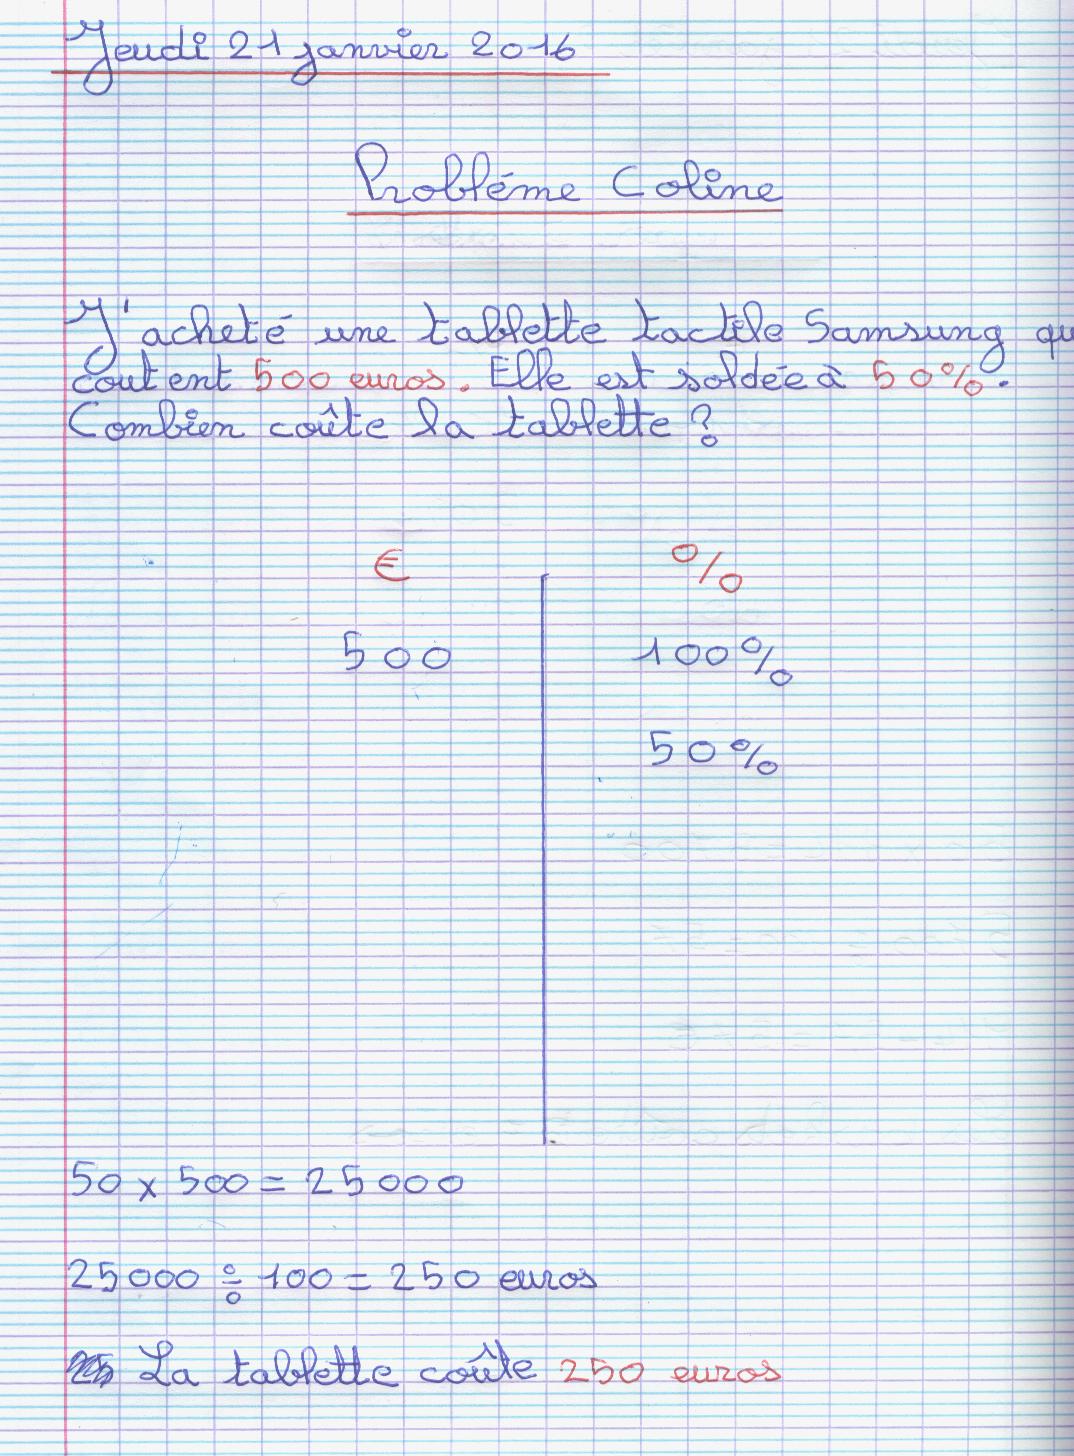 Jeudi 21 janvier 2016
Probléme Coline
J'acheté une tablette tactile Samsung qu
coutent 500 euros. Elle est soldée à 50%.
Combien coûte la tablette ?
€ %
500 100%
50%
50 x 500 = 25000
25000 ÷ 100 = 250 euros
La tablette coûte 250 euros